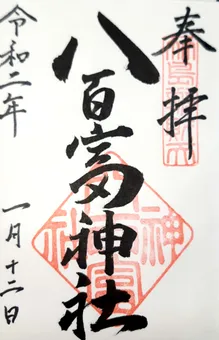 奉拝
八百富神社
令和二年
一月十二日